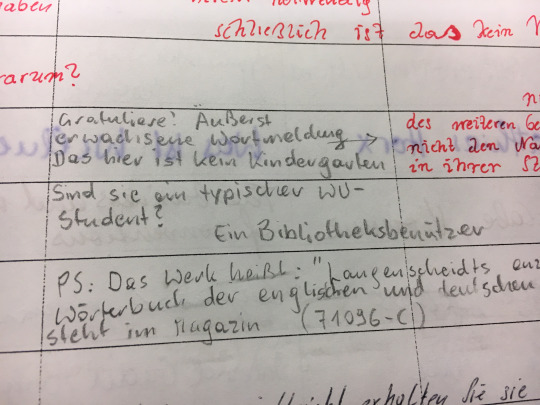 haben
schließlich ist das kein
warum?
Gratuliere! Äußerst
erwachsene Wortmeldung →
Das hier ist kein Kindergarten
des weiteren
nicht den
in ihrer
Sind sie ein typischer WU-
Student?
Ein Bibliotheksbenützer
PS: Das Werk heißt: "Langenscheidts enz
Wörterbuch der englischen und deutschen
steht im Magazin (71096-C)
erhalten Sie sie